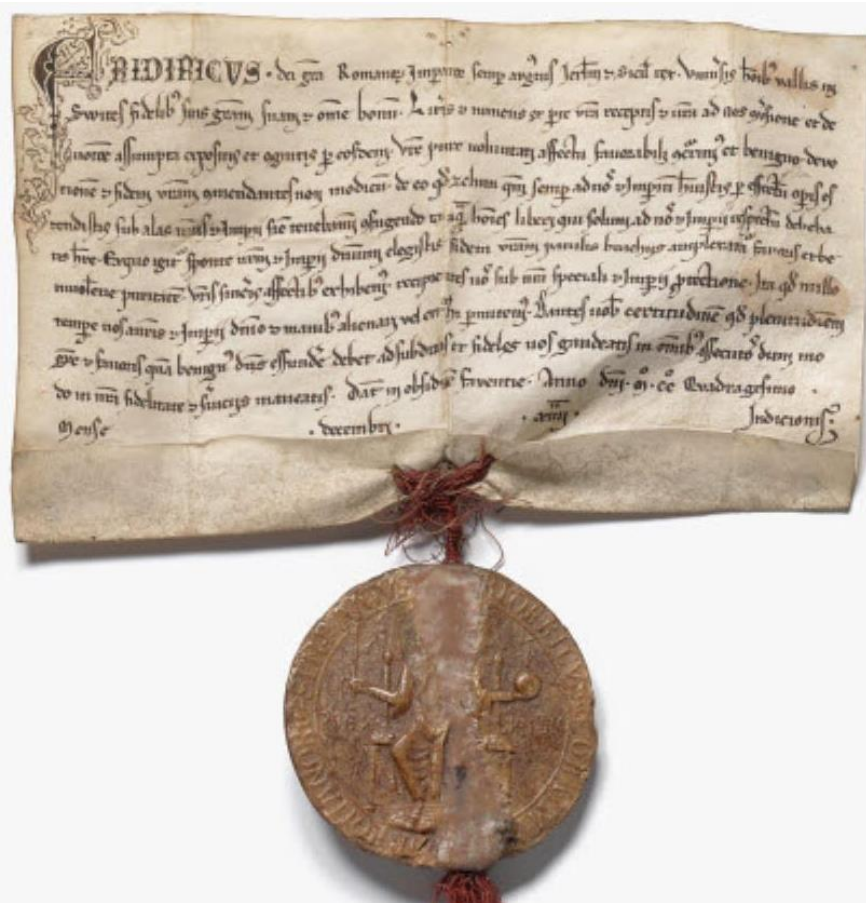 FRIDIRICVS · dei gra Romanoꝝ Imparator semp augustus Ierlm ⁊ Sicil rex · Vniuſis hoib vallis in
Swites fidelib suis gram suam ⁊ omne bonum · Lris ⁊ nunciis ex parte vra receptis ⁊ vra ad nos ꝯuersione et de
uotione assumpta expositis et cognitis ꝑ eosdem · Vre pure voluntati affectu fauorabili ꝯcurrimꝰ et benigno · deuo
tionē ⁊ fidem vram ꝯmendantes non modicum · de eo qd zelum quē semꝑ ad nos ⁊ Imperiū huistis ꝑ effectū opis os
tendistis sub alas nras ⁊ Imperii sic tenebamī ꝯfugiendo hoīes liberi qui solum ad nos ⁊ Imperiū respectū debeba
tis hre · Ex quo igit sponte nrm ⁊ Imperii dnium elegistis fidem vram patulis brachiis amplexamur fauoris et be
niuolentie puritatem vris sinceris affectibꝰ exhibemꝰ recipientes vos sub nra speciali ⁊ Imperii ꝓtectione · Ita qd nullo
tempore vos a nris ⁊ Imperii dnio ⁊ manibꝰ alienari vel ext'hi permittemꝰ · Dantes uob certitudinē qd plenitudinem
gre ⁊ fauoris quā benignꝰ dns effunde debet ad subditos et fideles vos gaudeatis in omibꝰ assecutos dum mo
do in nra fidelitate ⁊ seruiciis maneatis · Dat in obsidione fauentie · Anno dni · m̊ · cc̊ Quadragesimo ·
Mense · decembri · · xiiii · Indicionis